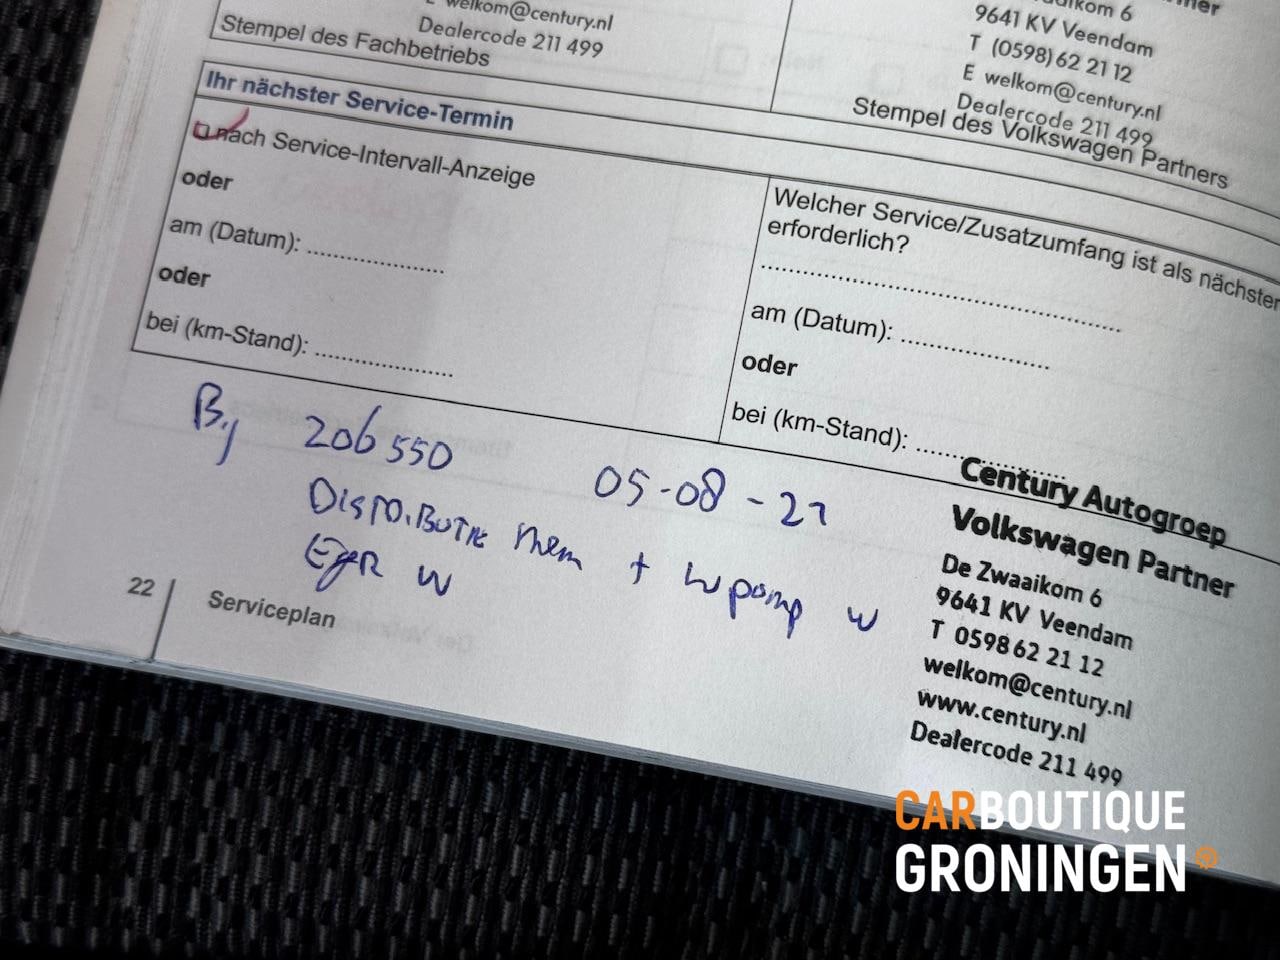 E welkom@century.nl
Dealercode 211 499
Stempel des Fachbetriebs
9641 KV Veendam
T (0598) 62 21 12
E welkom@century.nl
Dealercode 211 499
Stempel des Volkswagen Partners
Ihr nächster Service-Termin
nach Service-Intervall-Anzeige
oder
am (Datum): ....................
oder
bei (km-Stand): ....................
Welcher Service/Zusatzumfang ist als nächster
erforderlich?
..................................................
am (Datum): ....................
oder
bei (km-Stand): ....................
Bij 206 550 05-08-21
+ wpomp w
EGR w
Century Autogroep
Volkswagen Partner
De Zwaaikom 6
9641 KV Veendam
T 0598 62 21 12
welkom@century.nl
www.century.nl
Dealercode 211 499
22 Serviceplan
CARBOUTIQUE
GRONINGEN